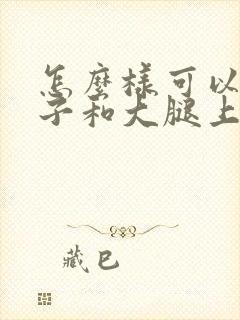 怎麼樣可以
子和大腿上
藏巴